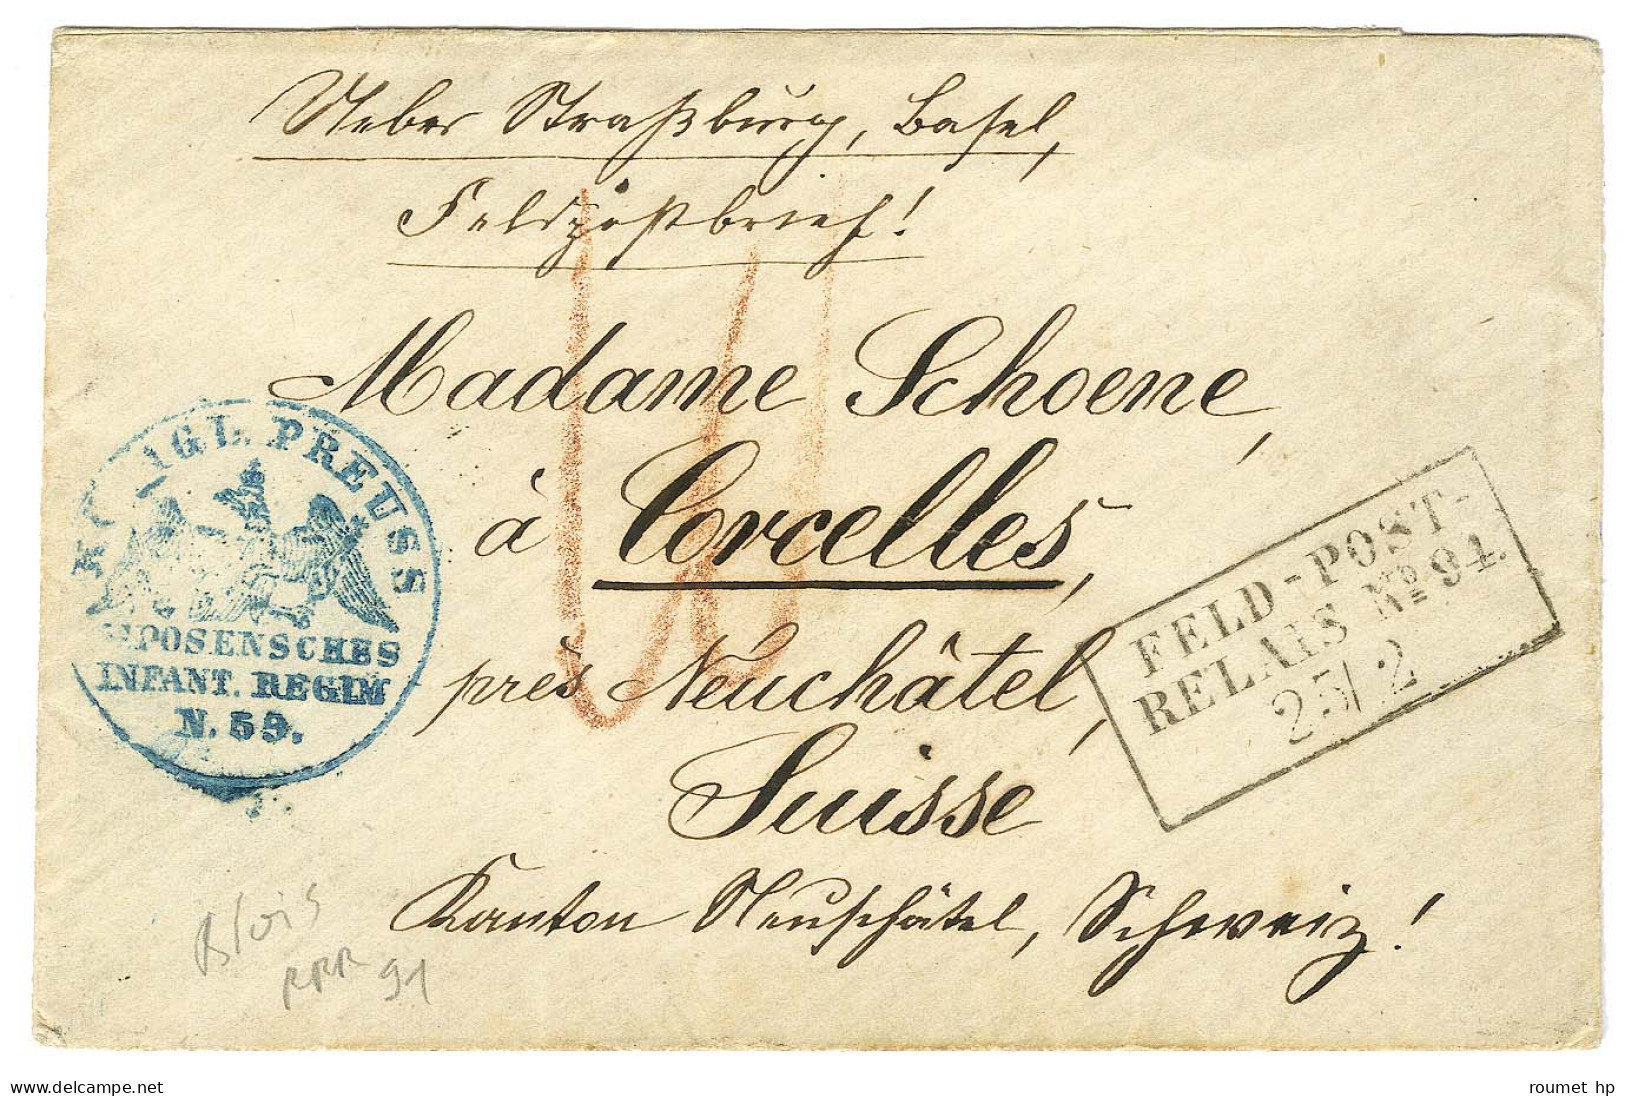 Ueber Straßburg, Basel,
Feldpostbrief!
Madame Schoene,
à Corcelles,
près Neuchâtel,
Suisse
Kanton Neuschâtel, Schweiz!
KÖNIGL. PREUSS
POSENSCHES
INFANT. REGIM
N. 59.
FELD-POST-
RELAIS No 94.
25/2
Blois
RRR 91
roumet hp